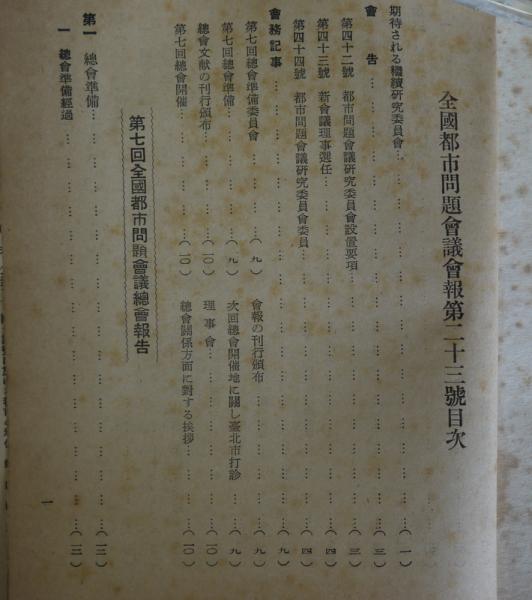 全國都市問題會議會報第二十三號目次
期待される繼續研究委員會…(一)
會告…(三)
第四十二號 都市問題會議研究委員會設置要項…(三)
第四十三號 新會議理事選任…(四)
第四十四號 都市問題會議研究委員會委員…(四)
會務記事…(九)
第七回總會準備委員會…(九)
會報の刊行頒布…(九)
第七回總會準備…(九)
次回總會開催地に關し臺北市打診…(九)
總會文献の刊行頒布…(一〇)
理事會…(一〇)
第七回總會開催…(一〇)
總會關係方面に對する挨拶…(一〇)
第七回全國都市問題會議總會報告
第一 總會準備…(一三)
一 總會準備經過…(一三)
一